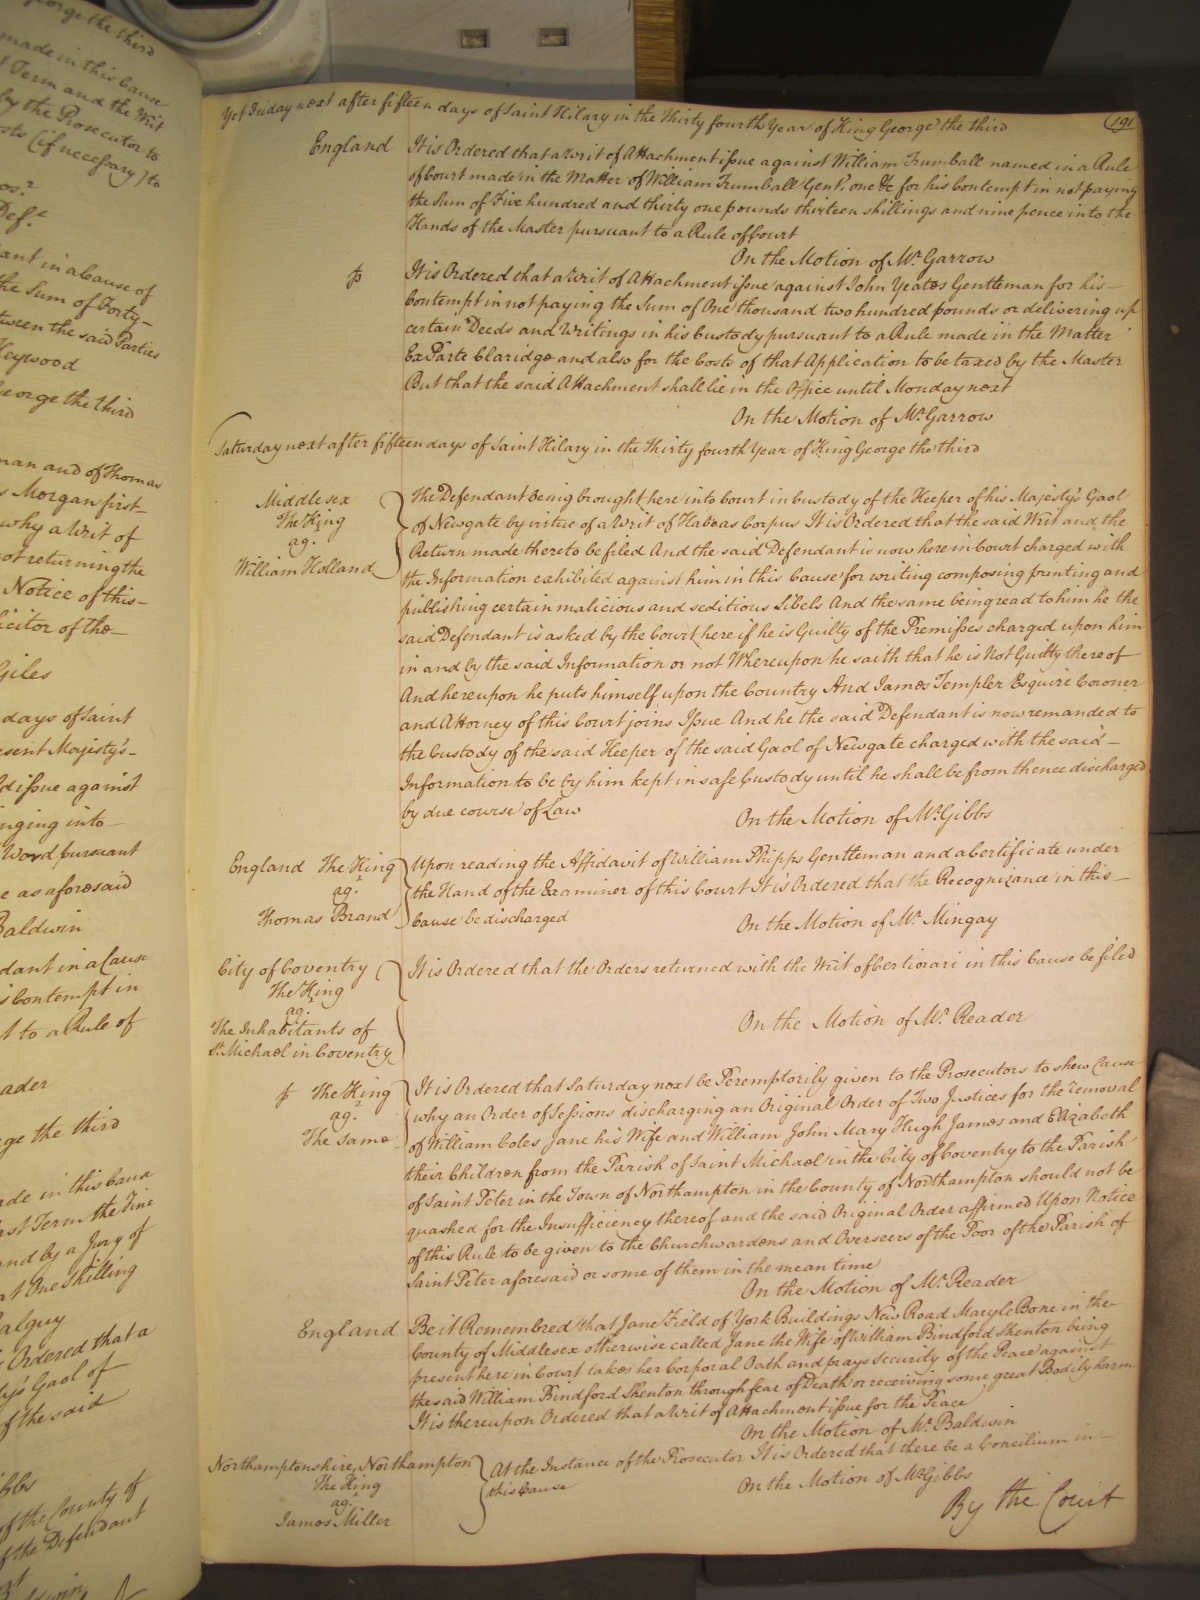 Yet Friday next after fifteen days of Saint Hilary in the Thirty fourth Year of King George the third
191
England It is Ordered that a Writ of Attachment issue against William Trumball named in a Rule
of Court made in the Matter of William Trumball Gent. one &c for his Contempt in not paying
the Sum of Five hundred and thirty one pounds thirteen shillings and nine pence into the
Hands of the Master pursuant to a Rule of Court
On the Motion of Mr. Garrow
It is Ordered that a Writ of Attachment issue against John Yeates Gentleman for his
Contempt in not paying the Sum of One thousand two hundred pounds or delivering up
certain Deeds and Writings in his Custody pursuant to a Rule made in the Matter
Ex Parte Claridge and also for the Costs of that Application to be taxed by the Master
But that the said Attachment shall lie in the Office until Monday next
On the Motion of Mr. Garrow
Saturday next after fifteen days of Saint Hilary in the Thirty fourth Year of King George the third
Middlesex
The King
agt.
William Holland
The Defendant being brought here into Court in Custody of the Keeper of his Majesty's Gaol
of Newgate by virtue of a Writ of Habeas Corpus It is Ordered that the said Writ and the
Return made thereto be filed And the said Defendant is now here in Court charged with
the Information exhibited against him in this Cause for writing composing printing and
publishing certain malicious and seditious Libels And the same being read to him he the
said Defendant is asked by the Court here if he is Guilty of the Premisses charged upon him
in and by the said Information or not Whereupon he saith that he is Not Guilty thereof
And hereupon he puts himself upon the Country And James Templer Esquire Coroner
and Attorney of this Court joins Issue And he the said Defendant is now remanded to
the Custody of the said Keeper of the said Gaol of Newgate charged with the said
Information to be by him kept in safe Custody until he shall be from thence discharged
by due course of Law
On the Motion of Mr. Gibbs
England The King
agt.
Thomas Brand
Upon reading the Affidavit of William Phipps Gentleman and a Certificate under
the Hand of the Examiner of this Court It is Ordered that the Recognizance in this
Cause be discharged
On the Motion of Mr. Mingay
City of Coventry
The King
agt.
The Inhabitants of
St. Michael in Coventry
It is Ordered that the Orders returned with the Writ of Certiorari in this Cause be filed
On the Motion of Mr. Reader
The King
agt.
The Same
It is Ordered that Saturday next be Peremptorily given to the Prosecutors to shew Cause
why an Order of Sessions discharging an Original Order of Two Justices for the removal
of William Coles Jane his Wife and William John Mary Hugh James and Elizabeth
their Children from the Parish of Saint Michael in the City of Coventry to the Parish
of Saint Peter in the Town of Northampton in the County of Northampton should not be
quashed for the Insufficiency thereof and the said Original Order affirmed Upon Notice
of this Rule to be given to the Churchwardens and Overseers of the Poor of the Parish of
Saint Peter aforesaid or some of them in the mean time
On the Motion of Mr. Reader
England Be it Remembred that Jane Field of York Buildings New Road Maryle Bone in the
County of Middlesex otherwise called Jane the Wife of William Bindford Shenton being
present here in Court takes her Corporal Oath and prays Security of the Peace against
the said William Bindford Shenton through fear of Death or receiving some great Bodily harm
It is thereupon Ordered that a Writ of Attachment issue for the Peace
On the Motion of Mr. Baldwin
Northamptonshire, Northampton
The King
agt.
James Miller
At the Instance of the Prosecutor It is Ordered that there be a Concilium in
this Cause
On the Motion of Mr. Gibbs
By the Court